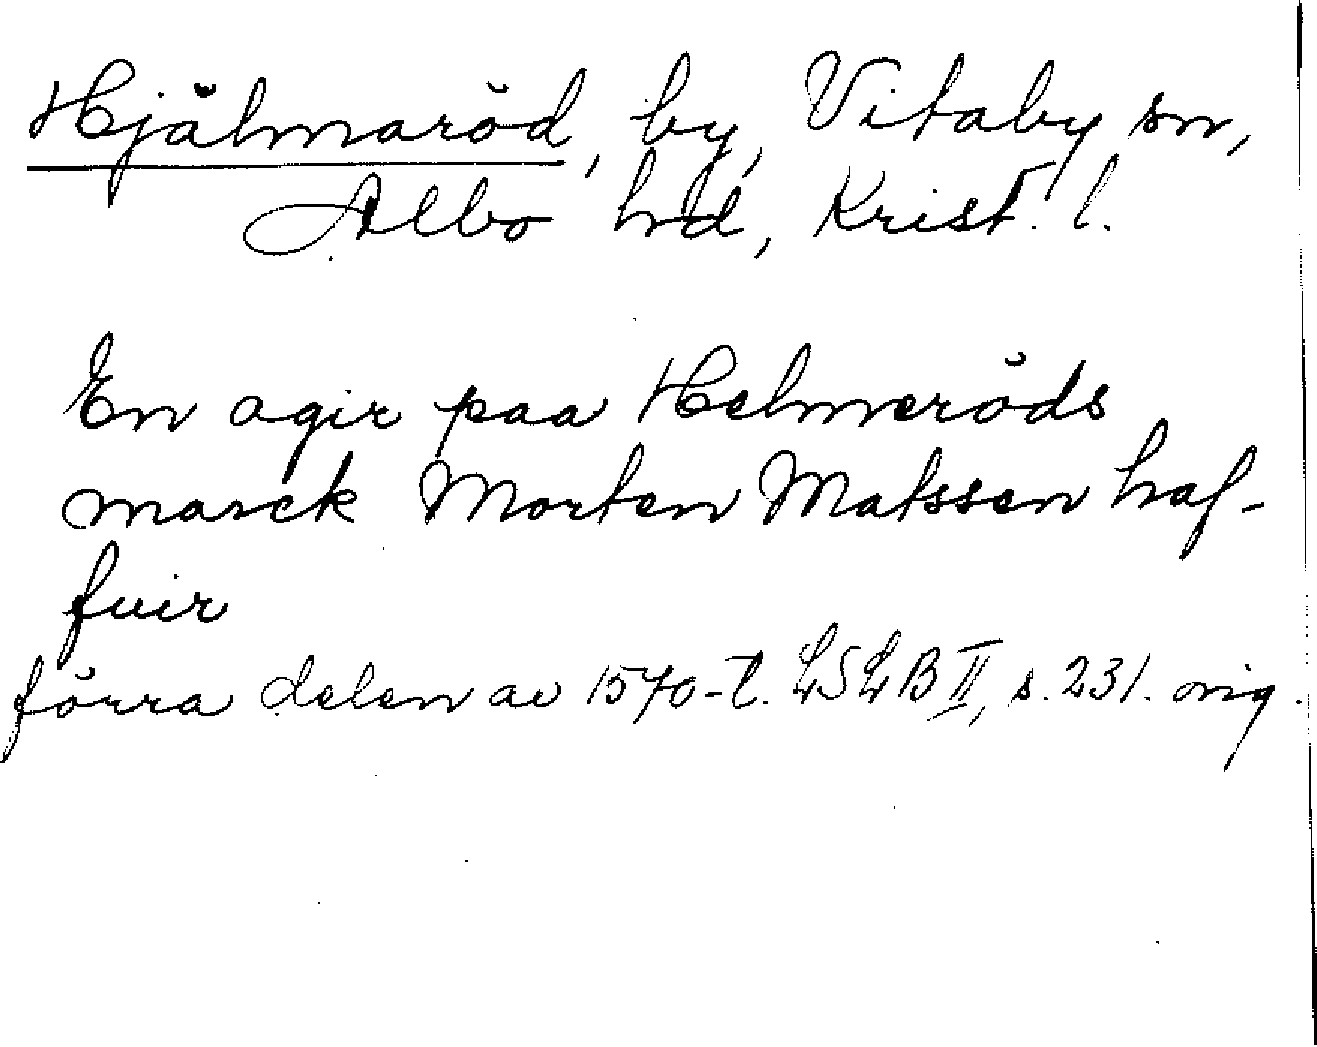 Hjälmaröd, by, Vitaby sn,
Albo hd, Krist. l.
En agir paa Helmeröds
marck Morten Matssen haf-
fuir
förra delen av 1570-t. LSLB II, s. 231. orig.